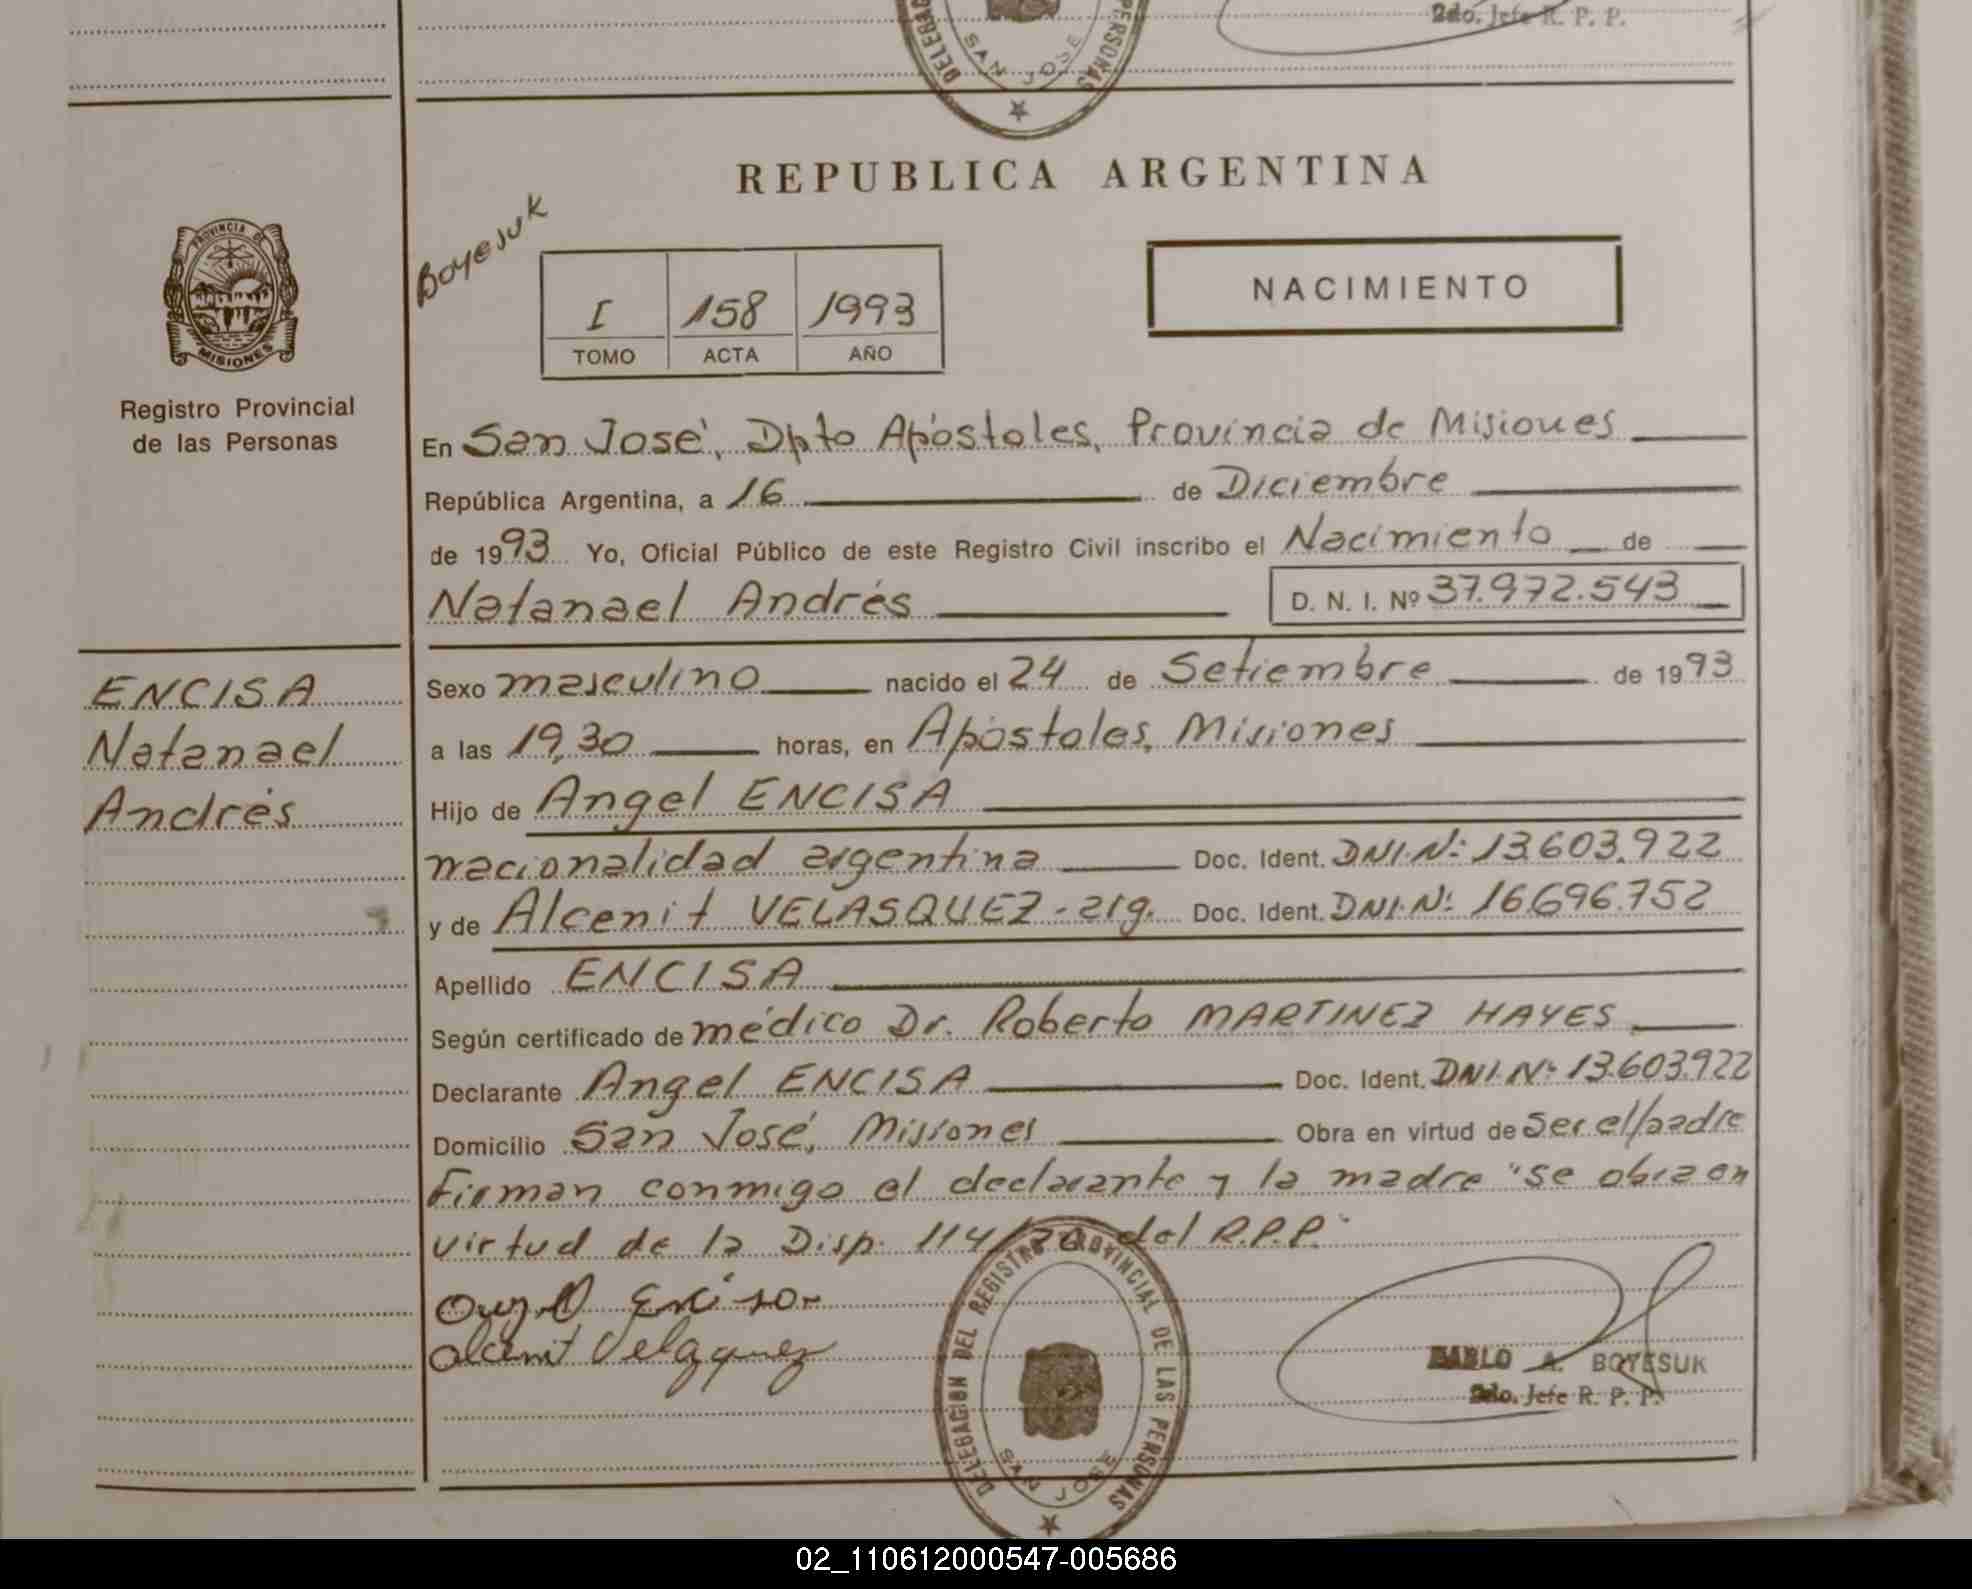 DELEGAC PERSONAS
SAN JOSE
2do. Jefe R. P. P.
PROVINCIA DE
MISIONES
Registro Provincial
de las Personas
ENCISA
Natanael
Andrés
REPUBLICA ARGENTINA
Boyesuk
I 158 1993
TOMO ACTA AÑO
NACIMIENTO
En San José, Dpto Apóstoles, Provincia de Misiones
República Argentina, a 16 de Diciembre
de 1993 Yo, Oficial Público de este Registro Civil inscribo el Nacimiento de
Natanael Andrés D. N. I. Nº 37.972.543
Sexo masculino nacido el 24 de Setiembre de 1993
a las 19,30 horas, en Apóstoles, Misiones
Hijo de Angel ENCISA
nacionalidad argentina Doc. Ident. DNI.Nº: 13.603.922
y de Alcenit VELASQUEZ - arg. Doc. Ident. DNI.Nº: 16.696.752
Apellido ENCISA
Según certificado de médico Dr. Roberto MARTINEZ HAYES
Declarante Angel ENCISA Doc. Ident. DNI.Nº 13.603.922
Domicilio San José, Misiones Obra en virtud de ser el padre
Firman conmigo el declarante y la madre "se obra en
virtud de la Disp. 114/70 del R.P.P."
Alcenit Velazquez
DELEGACION DEL REGISTRO PROVINCIAL DE LAS PERSONAS
SAN JOSE
PABLO A. BOYESUK
2do. Jefe R. P. P.
02_110612000547-005686